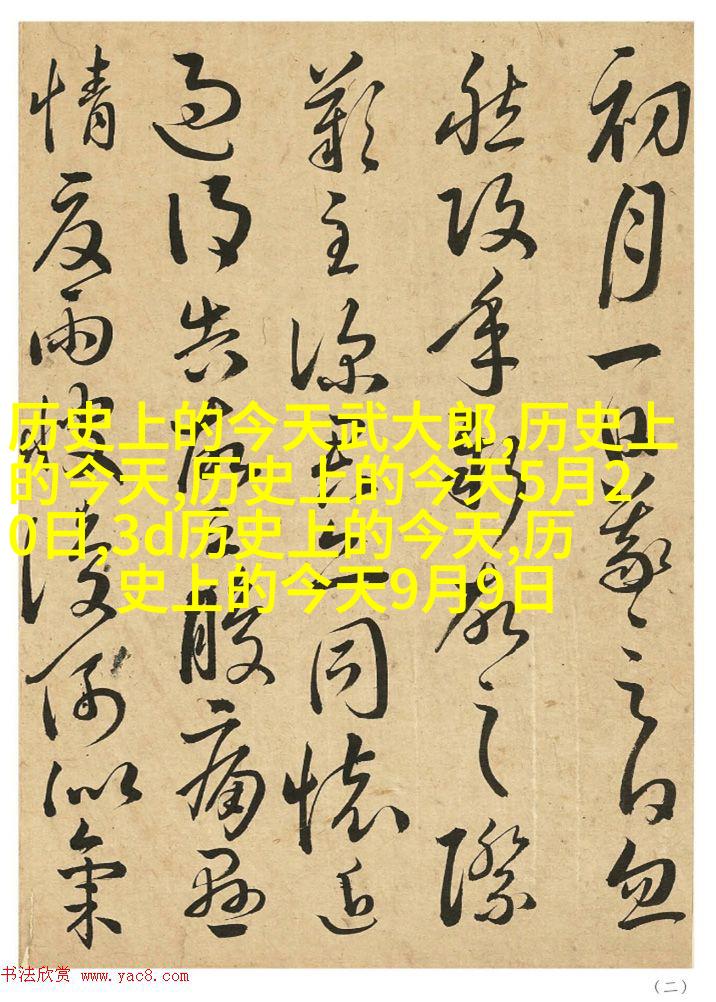 初月一日羲之白忽
然改年新故之際
歎至深君亦同懷近
過得告
腹痛懸
情
雨
復何似氣
历史上的今天武大郎,历史上
的今天,历史上的今天5月2
0日,3d历史上的今天,历
史上的今天9月9日
书法欣赏 www.yac8.com
（二）